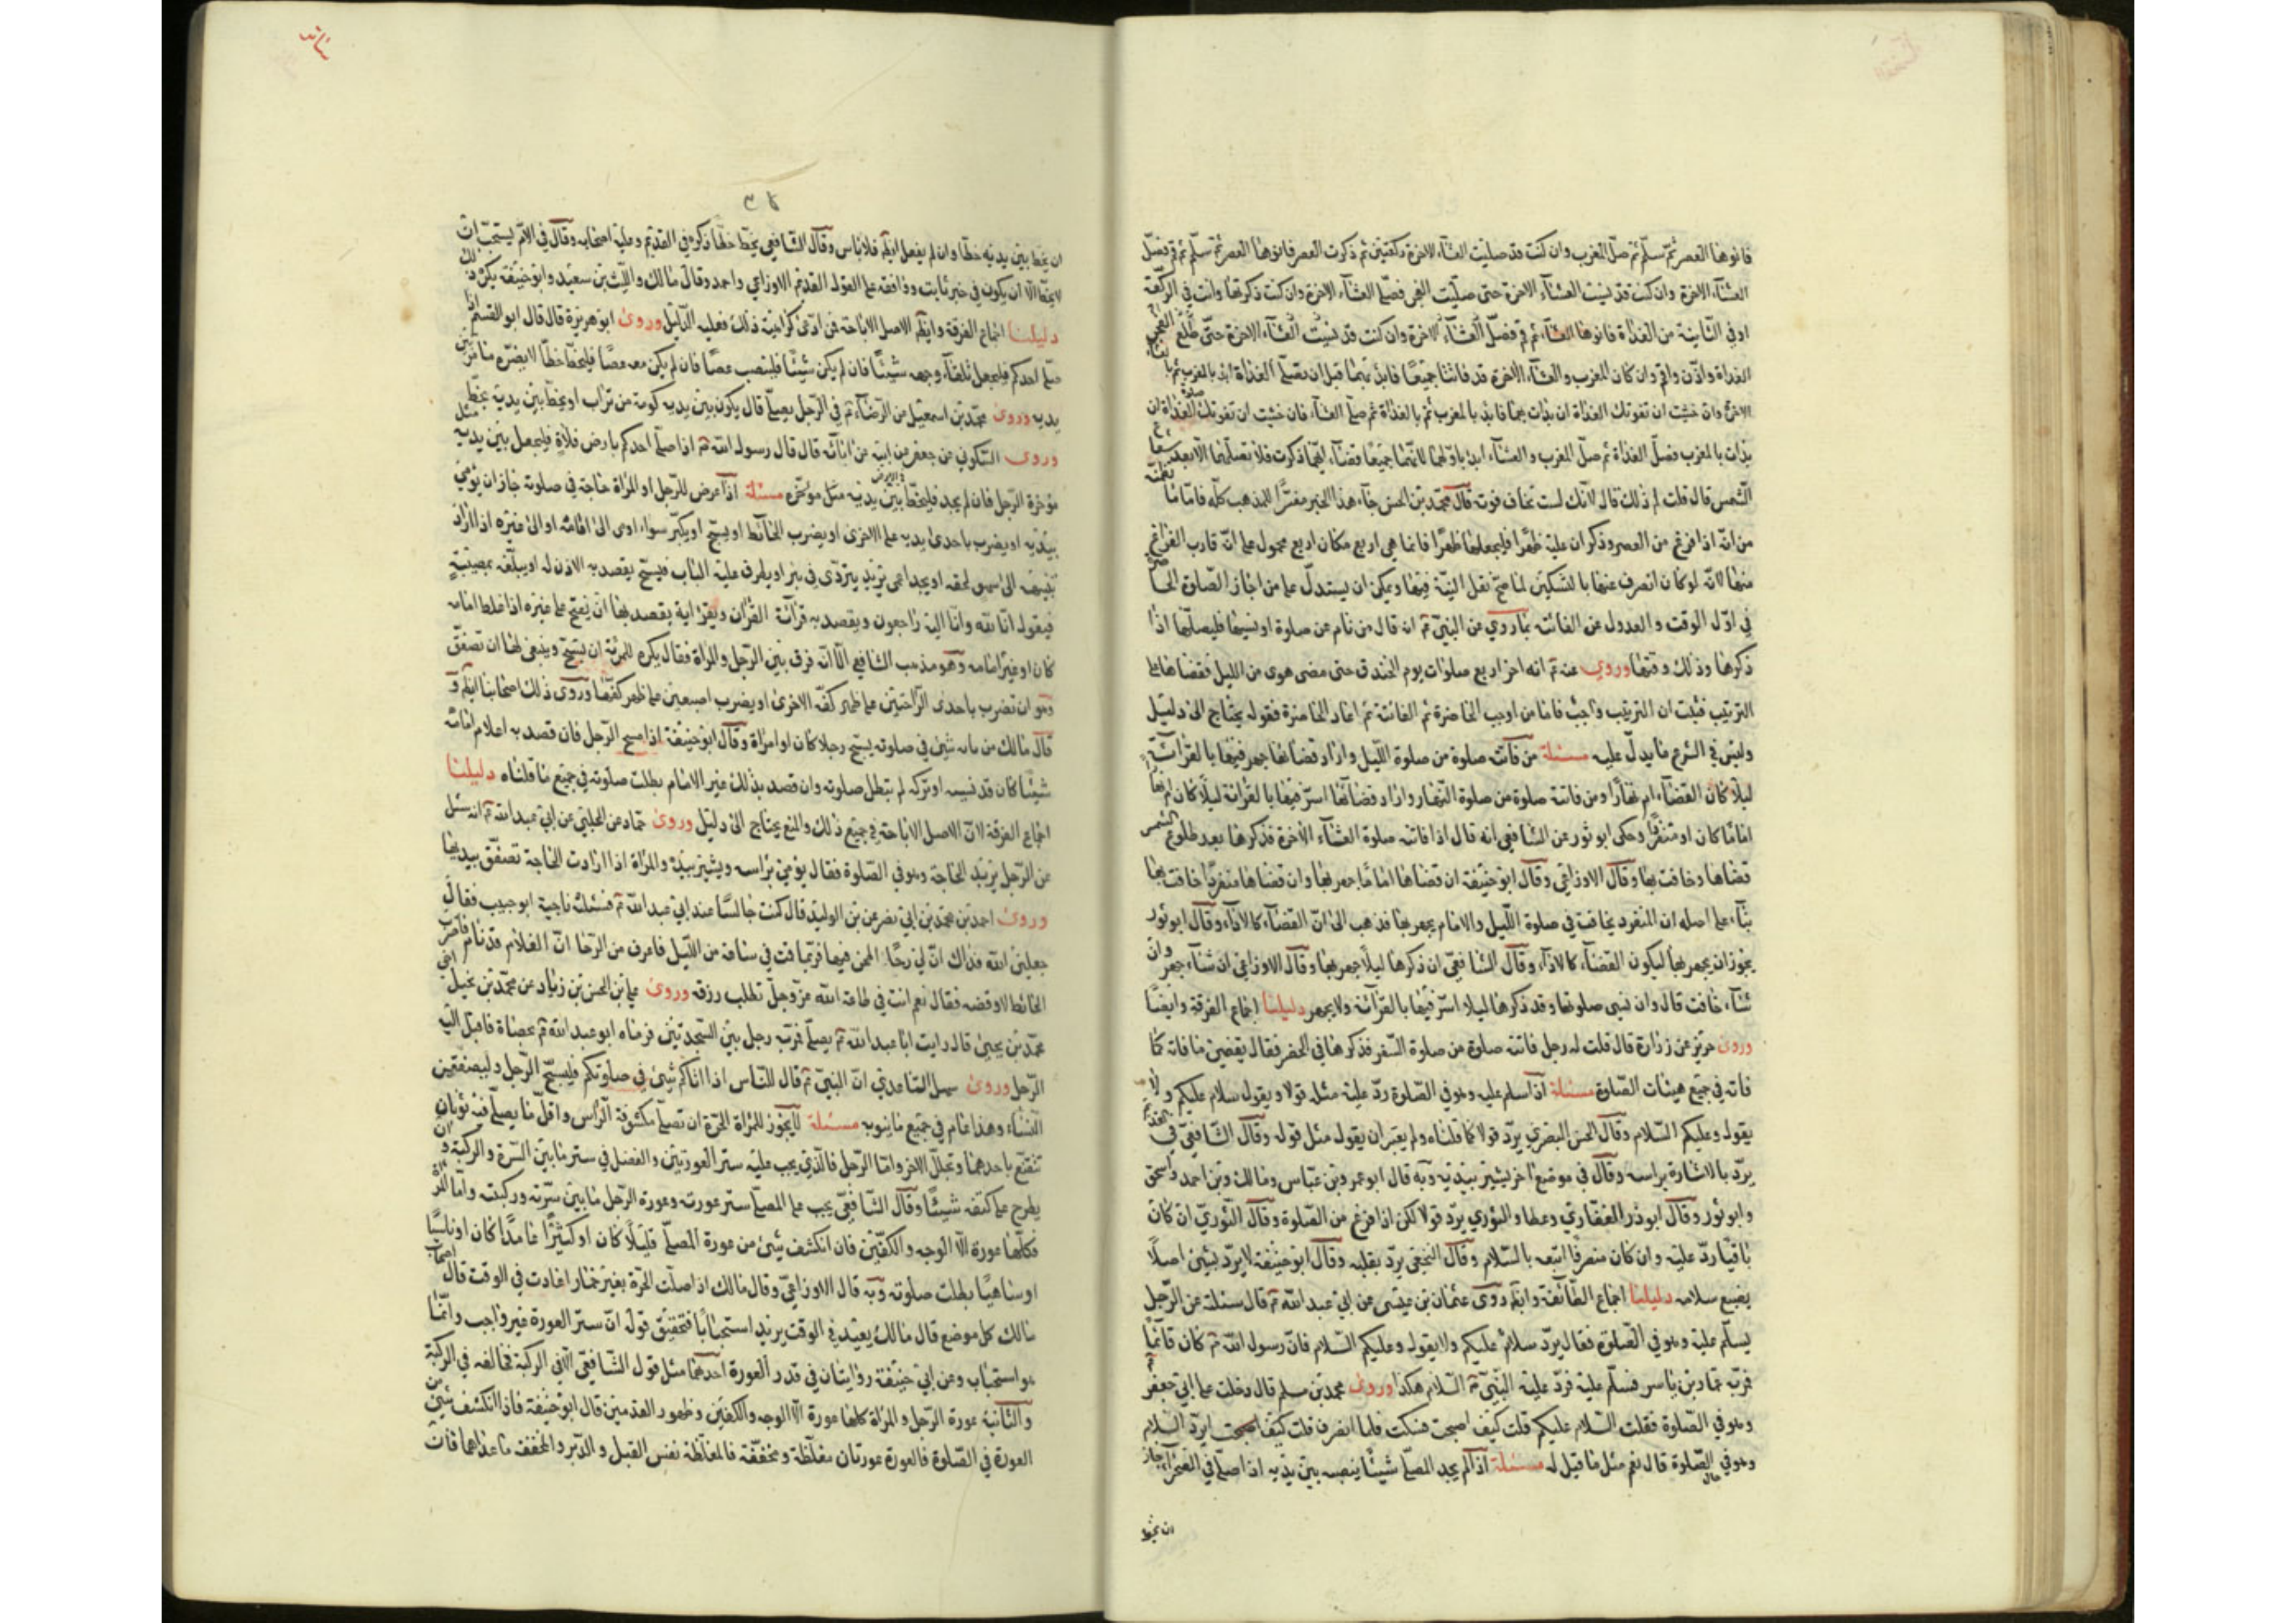 فانوها العصر ثم سلّم ثم صلّ المغرب وان كنت قد صليت العشآء الاخرة ركعتين ثم ذكرت العصر فانوها العصر ثم سلّم ثم قم فصلّ
العشآء الاخرة وان كنت قد نسيت العشآء الاخرة حتى صلّيت الفجر فصلّ العشآء الاخرة وان كنت ذكرتها وانت في الركعة
او في الثانية من الغداة فانوها العشآء ثم قم فصلّ الغداة
الغداة واذّن واقم وان كان المغرب والعشآء الاخرة قد فاتتا جميعًا فابدأ بهما قبل ان تصلّي الغداة ابدأ بالمغرب ثم بالعشآء
الاخرة وان خشيت ان تفوتك الغداة ان بدأت بهما فابدأ بالمغرب ثم بالغداة ثم صلّ العشآء فان خشيت ان تفوتك صلاة الغداة ان
بدأت بالمغرب فصلّ الغداة ثم صلّ المغرب والعشآء ابدأ باولهما لانهما جميعًا قضآء ايهما ذكرت فلا تصلّهما الا بعد شعاع
الشمس قال قلت لم ذلك قال لانك لست تخاف فوته قال محمّد بن الحسن جآء هذا الخبر مفسّرًا للمذهب كلّه فامّا ما
من انه اذا فرغ من العصر وذكر ان عليه ظهرًا فليجعلها ظهرًا فانما هي اربع مكان اربع محمول على انّه قارب الفراغ
منها لانّه لو كان انصرف عنها بالتسليم لما صحّ نقل النيّة فيها ويمكن ان يستدلّ على من اجاز الصلوة الحاضرة
في اوّل الوقت والعدول عن الفائتة بما روي عن النبيّ ۴ ان قال من نام عن صلوة او نسيها فليصلّها اذا
ذكرها وذلك وقتها وروي عنه ۴ انه اخر اربع صلوات يوم الخندق حتى مضى هوى من الليل فقضاها على
الترتيب فثبت ان الترتيب واجب فاما من اوجب الحاضرة ثم الفائتة ثم اعاد الحاضرة فقوله يحتاج الى دليل
وليس في الشرع ما يدلّ عليه مسئلة من فاتته صلوة من صلوة الليل واراد قضائها جهر فيها بالقرائة
ليلًا كان القضآء ام نهارًا ومن فاتته صلوة من صلوة النهار واراد قضائها اسرّ فيها بالقرائة ليلًا كان ام نهارًا
امامًا كان او منفردًا وحكى ابو ثور عن الشافعي انه قال اذا فاتته صلوة العشآء الاخرة فذكرها بعد طلوع الشمس
قضاها وخافت بها وقال الاوزاعي وقال ابو حنيفة ان قضاها امامًا جهر بها وان قضاها منفردًا خافت بها
بنآء على اصله ان المنفرد يخافت في صلوة الليل والامام يجهر بها فذهب الى انّ القضآء كالادآء وقال ابو ثور
يجوز ان يجهر بها ليكون القضآء كالادآء وقال الشافعي ان ذكرها ليلًا جهر بها وقال الاوزاعي ان شآء جهر وان
شآء خافت قال وان نسي صلوة نهار وقد ذكرها ليلا اسرّ فيها بالقرائة ولا يجهر دليلنا اجماع الفرقة وايضًا
وروى حريز عن زرارة قال قلت له رجل فاتته صلوة من صلوة السفر فذكرها في الحضر فقال يقضي ما فاته كما
فاته في جميع هيئات الصلوة مسئلة اذا سلم عليه وهو في الصلوة ردّ عليه مثله قولا ويقول سلام عليكم ولا
يقول وعليكم السلام وقال الحسن البصري يردّ قولا كما قلناه ولم يعتبر ان يقول مثل قوله وقال الشافعي في
يردّ بالاشارة براسه وقال في موضع اخر يشير بيديه وبه قال ابو عمر وبن عبّاس ومالك وبن احمد واسحق
وابو ثور وقال ابو ذر الغفاري وعطا والثوري يردّ قولا لكن اذا فرغ من الصلوة وقال الثوري ان كان
باقيًا ردّ عليه وان كان منصرفًا اتبعه بالسلام وقال النخعي يردّ بقلبه وقال ابو حنيفة لا يردّ بشيئ اصلًا
يضيع سلامه دليلنا اجماع الطائفة وايضًا روى عثمان بن عيسى عن ابي عبد الله ۴ قال سئلته عن الرّجل
يسلّم عليه وهو في الصلوة فقال يردّ سلام عليكم ولا يقول وعليكم السلام فانّ رسول الله ۴ كان قائمًا
فمرّ به عمّار بن ياسر فسلّم عليه فردّ عليه النبيّ ۴ السلام هكذا وروى محمد بن مسلم قال دخلت على ابي جعفر
وهو في الصلوة فقلت السلام عليكم قلت كيف اصبحت فسكت فلما انصرف قلت كيف اصبحت ايردّ السلام
وهو في الصلوة قال نعم مثل ما قيل له مسئلة اذا لم يجد المصلّي شيئًا ينصبه بين يديه اذا صلّى في الصحراء جاز
ان يخط
ان يخط بين يديه خطًا وان لم يفعل ايضًا فلا بأس وقال الشافعي يخطّ خطًا ذكره في القديم وعليه اصحابه وقال في الام يستحبّ ان
لا يخطّ الا ان يكون في خبر ثابت ووافقه على القول القديم الاوزاعي واحمد وقال مالك والليث بن سعيد وابو حنيفة يكره ذلك
دليلنا اجماع الفرقة وايضًا الاصل الاباحة فمن ادّعى كراهية ذلك فعليه الدّليل وروى ابو هريرة قال قال ابو القسم اذا
صلى احدكم فليجعل تلقآء وجهه شيئًا فان لم يكن شيئًا فلينصب عصًا فان لم يكن معه عصًا فليخطّ خطًا لا يضرّه ما مرّ بين
يديه وروى محمّد بن اسمعيل من الرضآء ۴ في الرّجل يصلّي قال يكون بين يديه كومة من تراب او يخطّ بين يديه بخطّ
وروى السكوني عن جعفر عن ابيه عن ابائه قال قال رسول الله ۴ اذا صلّى احدكم بارض فلاة فليجعل بين يديه مثل
مؤخرة الرّحل فان لم يجد فليخطّ بين يديه مسئلة اذا عرض للرّجل او المرأة حاجة في صلوته جاز ان يومئ
بيديه او يضرب باحدى يديه على الاخرى او يضرب الحائط او يسبّح او يكبّر سواء اومى الى امامه او الى غيره اذا اراد
تنبيهه الى سهو لحقه او يجد اعمى يريد يتردّى في بئر او يطرق عليه الباب فيسبّح يقصد به الاذن له او يبلّغه بمصيبة
فيقول انا لله وانا اليه راجعون ويقصد به قرآئة القرآن ويقرأ اية يقصد بها ان يفتح على غيره اذا غلط امامه
كان او غير امامه وهو مذهب الشافعي الّا انّه فرق بين الرّجل والمرأة فقال يكره للمرئة ان تسبّح وينبغي لها ان تصفّق
وهو ان تضرب باحدى الرّاحتين على ظهر كفّه الاخرى او يضرب اصبعين على ظهر كفّها وروى ذلك اصحابنا ايضًا و
قال مالك من نابه شيئ في صلوته يسبّح رجلا كان او امرأة وقال ابو حنيفة اذا سبح الرّجل فان قصد به اعلام امامه
شيئًا كان قد نسيه او تركه لم تبطل صلوته وان قصد بذلك غير الامام بطلت صلوته في جميع ما قلناه دليلنا
اجماع الفرقة لانّ الاصل الاباحة في جميع ذلك والمنع يحتاج الى دليل وروى حماد عن الحلبي عن ابي عبد الله ۴ انه سئل
عن الرّجل يريد الحاجة وهو في الصلوة فقال يومئ براسه ويشير بيده والمرأة اذا ارادت الحاجة تصفّق بيديها
وروى احمد بن محمّد بن ابي نصر عن بن الوليد قال كنت جالسًا عند ابي عبد الله ۴ فسئله ناجية ابو حبيب فقال
جعلني الله فداك انّ لي رحًا اطحن فيها فربّما قمت في ساعة من اللّيل فاعرف من الرّحا انّ الغلام قد نام فاضرب
الحائط لاوقضه فقال نعم انت في طاعة الله عزّ وجلّ تطلب رزقه وروى علي بن الحسن بن زياد عن محمّد بن بجيل اخي
محمّد بن يحيى قال رايت ابا عبد الله ۴ يصلّي فمرّ به رجل بين السّجدتين فرماه ابو عبد الله ۴ بحصاة فاقبل اليه
الرّجل وروى سهل الساعدي انّ النبيّ ۴ قال للنّاس اذا اتاكم شيئ في صلوتكم فليسبّح الرّجل وليصفقن
النّساء وهذا عام في جميع ما ينوبه مسئلة لا يجوز للمرأة الحرّة ان تصلّي مكشوفة الرأس واقلّ ما يصلّى فيه ثوبان
تتقنّع باحدهما وتجلّل الاخر وامّا الرّجل فالّذي يجب عليه ستر العورتين والفضل في ستر ما بين السّرة والركبة وان
يطرح على كتفه شيئًا وقال الشافعي يجب على المصلّي ستر عورته وعورة الرّجل ما بين سرّته وركبته وامّا المرأة
فكلّها عورة الّا الوجه والكفّين فان انكشف شيئ من عورة المصلّي قليلًا كان او كثيرًا عامدًا كان او ناسيًا
او ساهيًا بطلت صلوته وبه قال الاوزاعي وقال مالك اذا صلّت الحرّة بغير خمار اعادت في الوقت قال اصحاب
مالك كل موضع قال مالك يعيد في الوقت يريد استحبابًا فتحقيق قوله انّ ستر العورة غير واجب وانّما
هو استحباب وعن ابي حنيفة روايتان في قدر العورة احدهما مثل قول الشافعي الّا في الركبة فخالفه في الركبة
والثانية عورة الرّجل والمرأة كلها عورة الّا الوجه والكفين وظهور القدمين قال ابو حنيفة فاذا انكشف شيئ من
العورة في الصلوة فالعورة عورتان مغلّظة ومخفّفة فالمغلّظة نفس القبل والدّبر والمخففة ما عداها فان